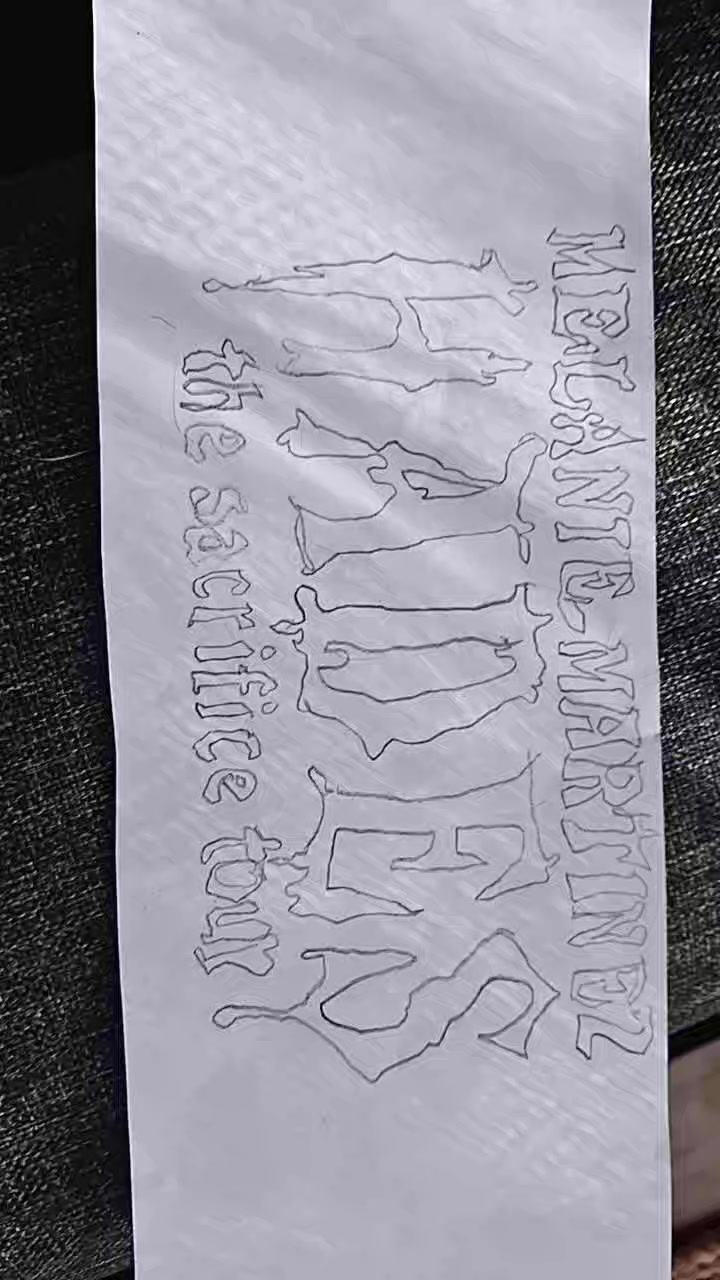 MELANIE MARTINEZ
HADES
the sacrifice tour